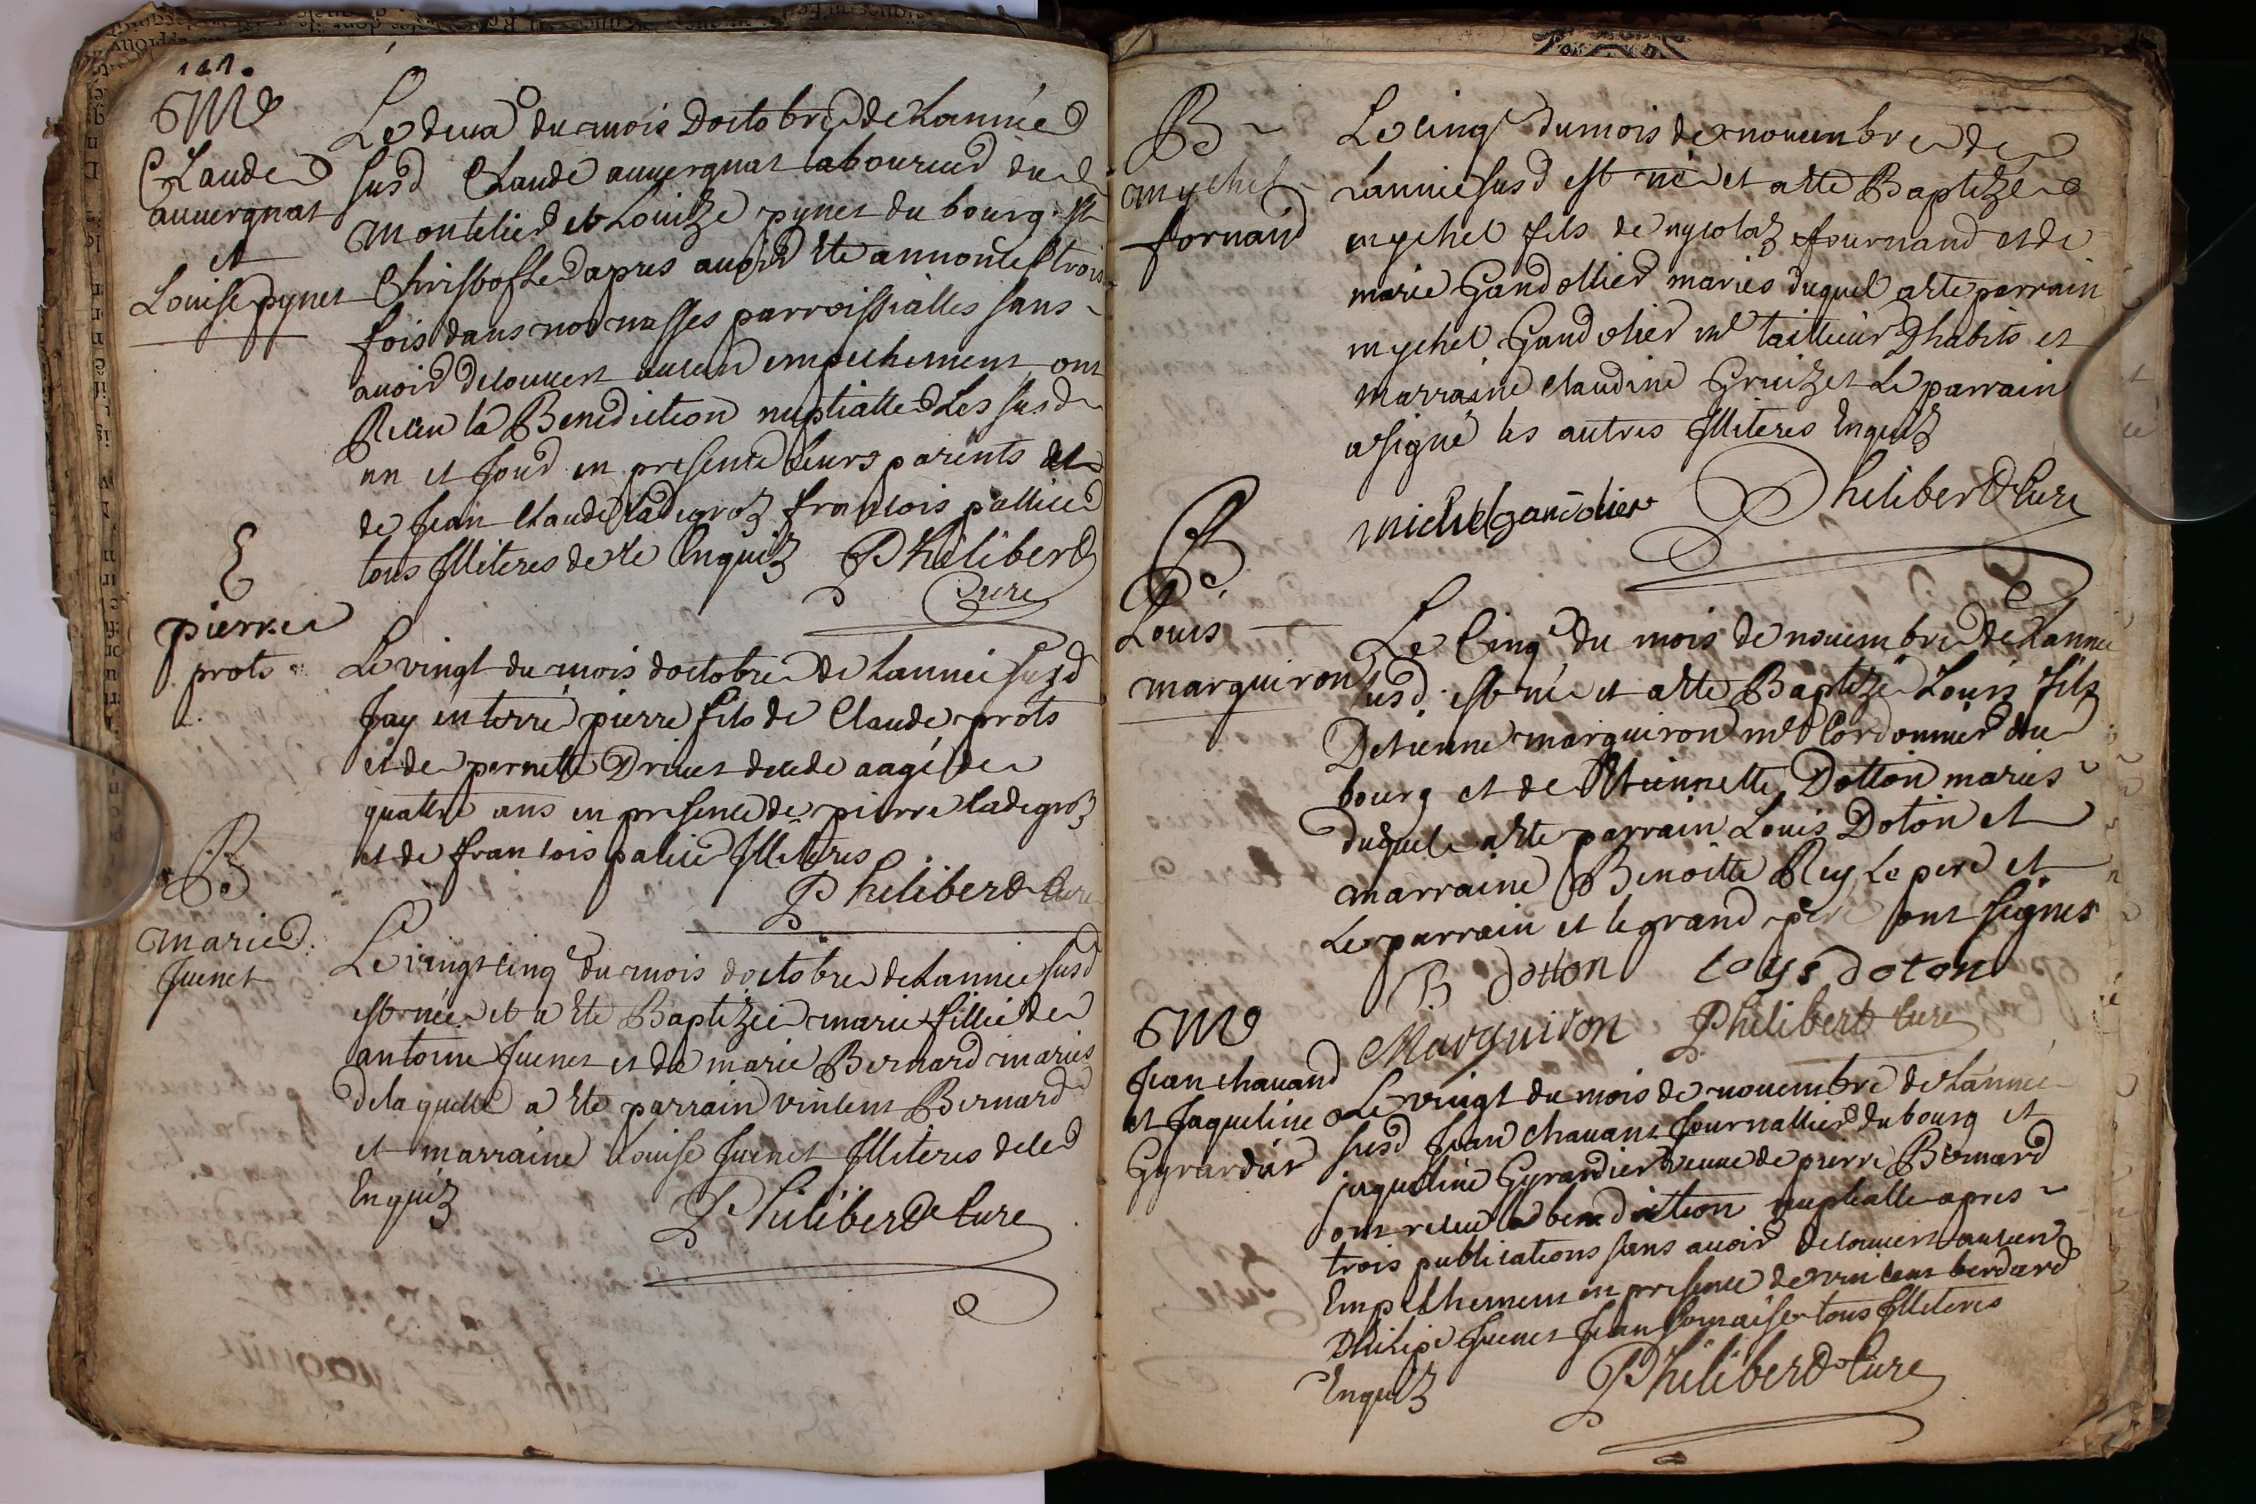 Me
Claude
auuergnat
et
Louise pynet
Le deux e du mois doctobre de Lannee
susd Claude auuergnat laboureur du
montelier et Louize pynet du bourg st
Christofle dapres auoir ete annonces trois
fois dans nos messes parroissialles sans
auoir decouuert aucun empechement ont
Receu la Benediction nuptialle Les susd
an et jour en presence leurs parents et
de jean Claude Cadegroz francois pallied
tous Illiteres de ce Enquiz Philiberd
Cure
E
pierre
prots
Le vingt du mois doctobre de Lannee susd
Jay enterré pierre fils de Claude prots
et de pernette Driuet decede aagé de
quattre ans en presence de pierre Cadegroz
et de francois palied Illiteres
Philiberd Cure
B
marie
Juenet
Le vingt cinq e du mois doctobre de Lannee susd
est née et a ete Baptizée marie fillie de
antoine Juenet et de marie Bernard maries
de laquelle a ete parrain vincent Bernard
et marraine Louise Juenet Illiteres de ce
Enquiz
Philiberd Cure
B
mychel
fornand
Le cinq e du mois de nouembre de
Lannee susd est né et a ete Baptizé
mychel fils de nycolaz fournand et de
marie Gandollier maries duquel a ete parrain
mychel Gandolier me tailleur Dhabits et
marraine Claudine Gruizet Le parrain
a signe les autres Illiteres Enquiz
michel gandolier Philiberd Cure
B
Louis
marquiron
Le Cinq e du mois de nouembre de Lannee
susd est né et a ete Baptizé Louis fils
Detienne marquiron me Cordonnier du
bourg et de Etiennette Dotton maries
duquel a ete parrain Louis Doton et
marraine Benoitte Rey Le pere et
Le parrain et le grand pere ont signes
B dotton Loys doton
Marquiron Philiberd Cure
Me
Jean chauand
et Jaqueline
Gyrardier
Le vingt du mois de nouembre de Lannee
susd Jean chauant Journallier du bourg et
jaqueline Gyrardier veuue de pierre Bernard
ont receu la benediction nuptialle apres
trois publications sans auoir decouuert aucun
Empechement en presence de vincent berdard
philipe Juenet Jean tous Illiteres
Enquiz
Philiberd Cure